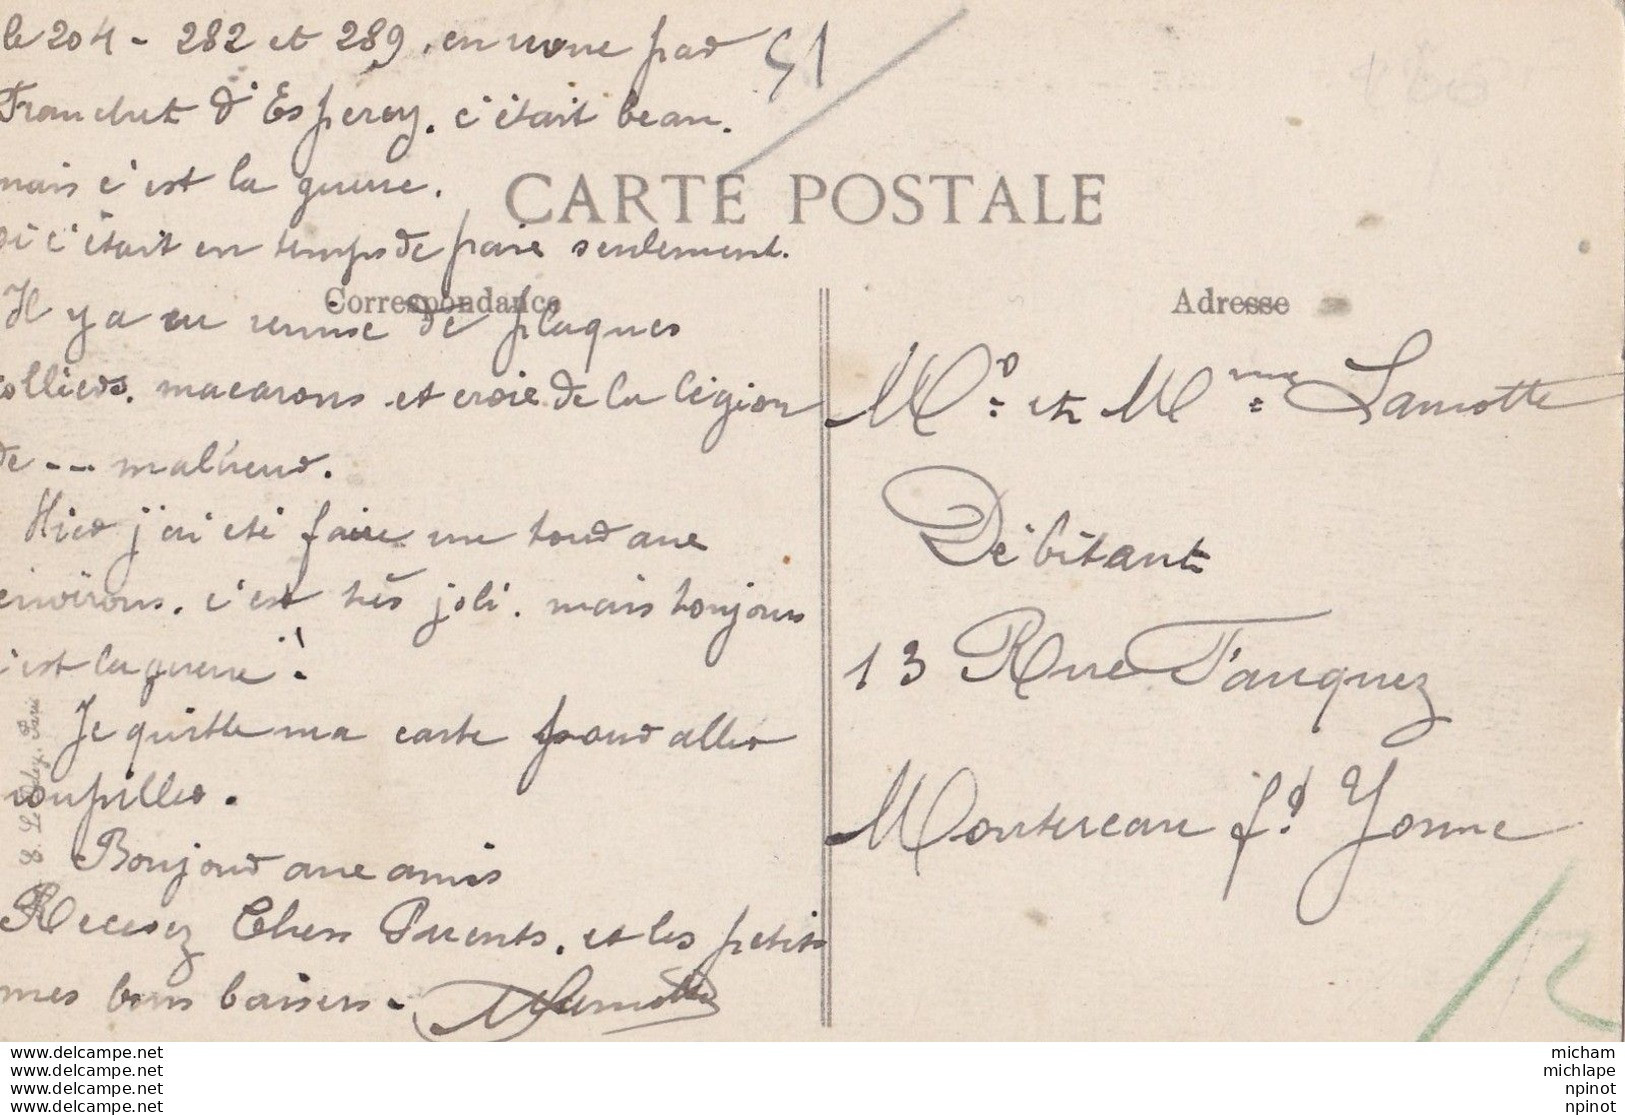 le 204 - 282 et 289, en revue par
Franchet d'Esperey. c'était beau.
mais c'est la guerre.
si c'était en temps de paix seulement.
Il y a eu remise de plaques
colliers, macarons et croix de la légion
de --- malheur.
Hier j'ai été faire un tour aux
environs. c'est très joli. mais toujours
c'est la guerre !
Je quitte ma carte pour aller
roupiller.
Bonjour aux amis
Recevez Chers Parents, et les petits
mes bons baisers.
Lamotte
51
CARTE POSTALE
Correspondance
Adresse
Mr et Mme Lamotte
Débitant
13 Rue Fauquez
Montereau fd Yonne
Paris
www.delcampe.net
www.delcampe.net
www.delcampe.net
www.delcampe.net
micham
michlape
npinot
npinot